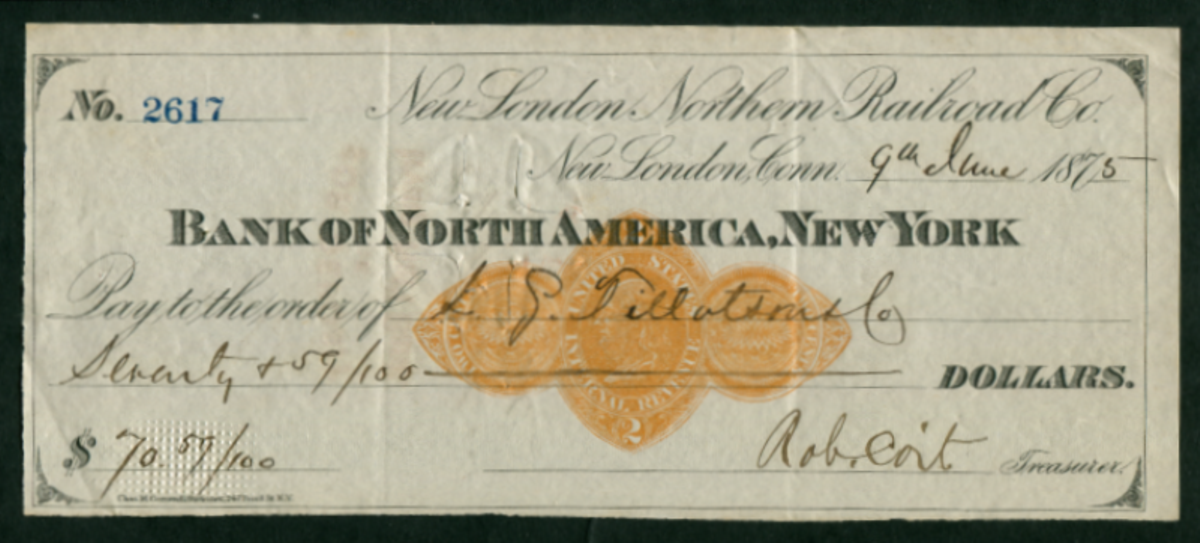 No. 2617 New London Northern Railroad Co.
New London, Conn. 9th June 1875
BANK OF NORTH AMERICA, NEW YORK
Pay to the order of L. G. Tillotson & Co
UNITED STATES
INTERNAL REVENUE
2
Seventy & 59/100 DOLLARS.
$ 70.59/100 Rob. Coit Treasurer.